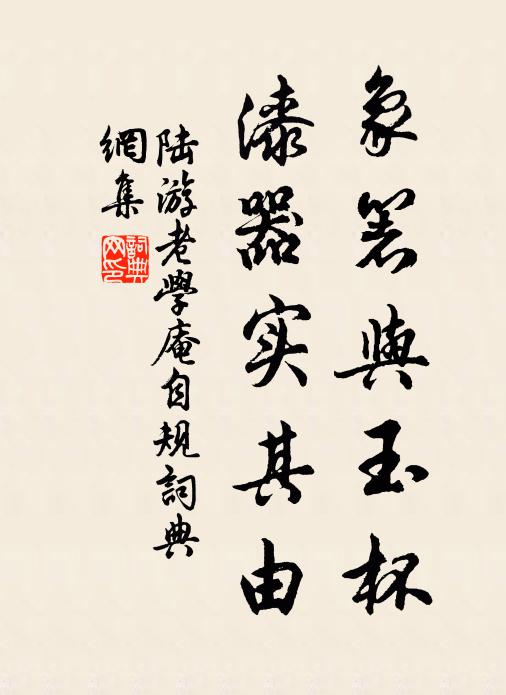 象箸與玉杯
漆器实其由
陆游老學庵自规詞典
網集
詞典
网印